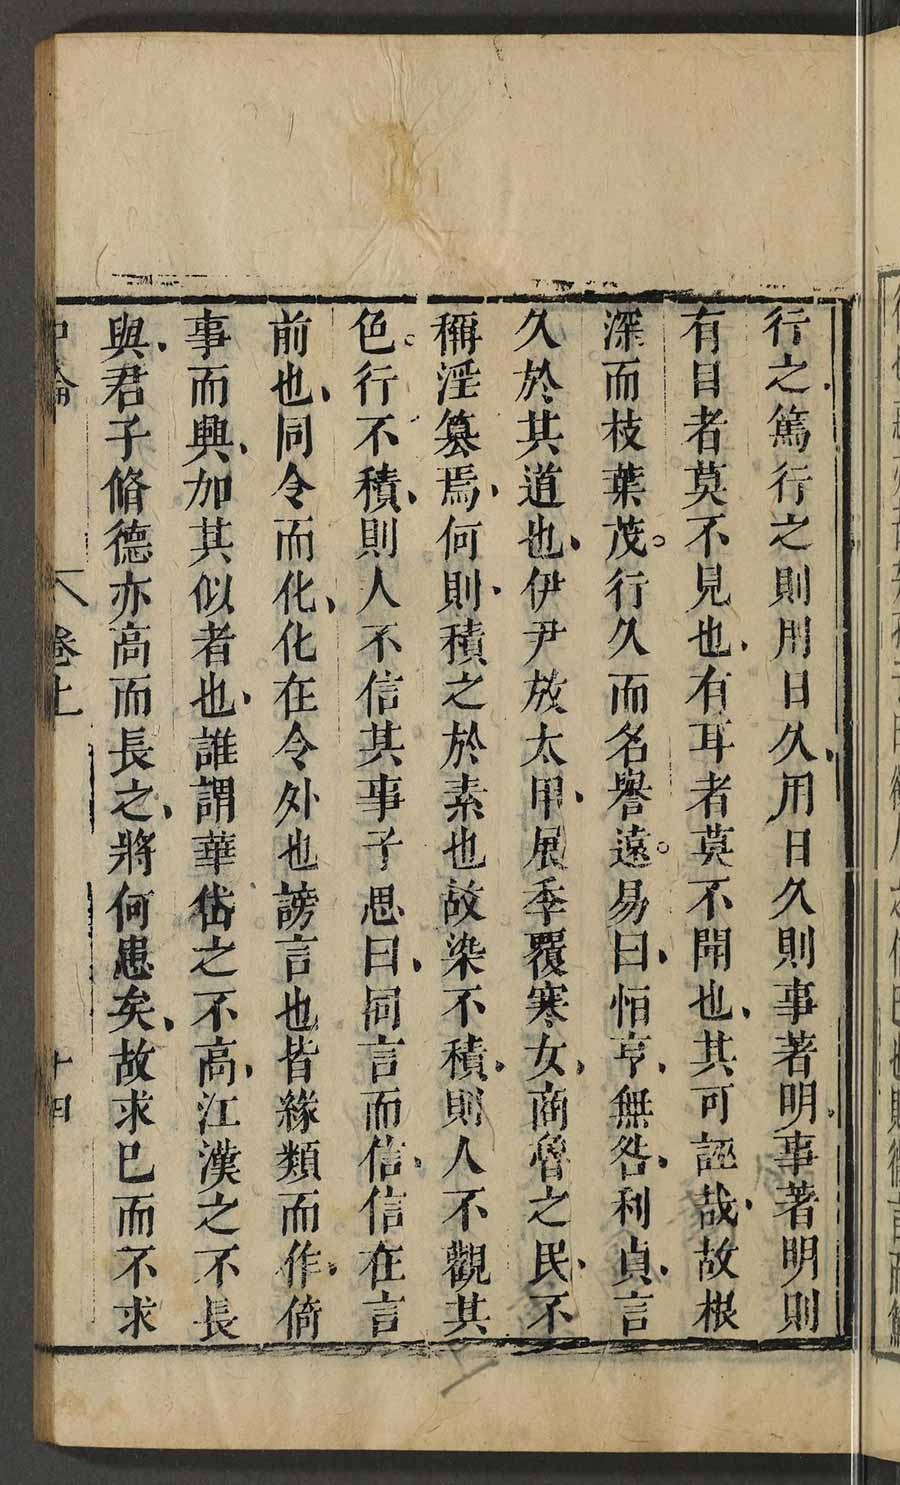 行之篤行之則用日久用日久則事著明事著明則
有目者莫不見也有耳者莫不聞也其可誣哉故根
深而枝葉茂行久而名譽遠易曰恒亨無咎利貞言
久於其道也伊尹放太甲展季覆寒女商魯之民不
稱淫篡焉何則積之於素也故染不積則人不觀其
色行不積則人不信其事子思曰同言而信信在言
前也同令而化化在令外也謗言也皆緣類而作倚
事而興加其似者也誰謂華岱之不高江漢之不長
與君子脩德亦高而長之將何患矣故求己而不求
中論 卷上 十四